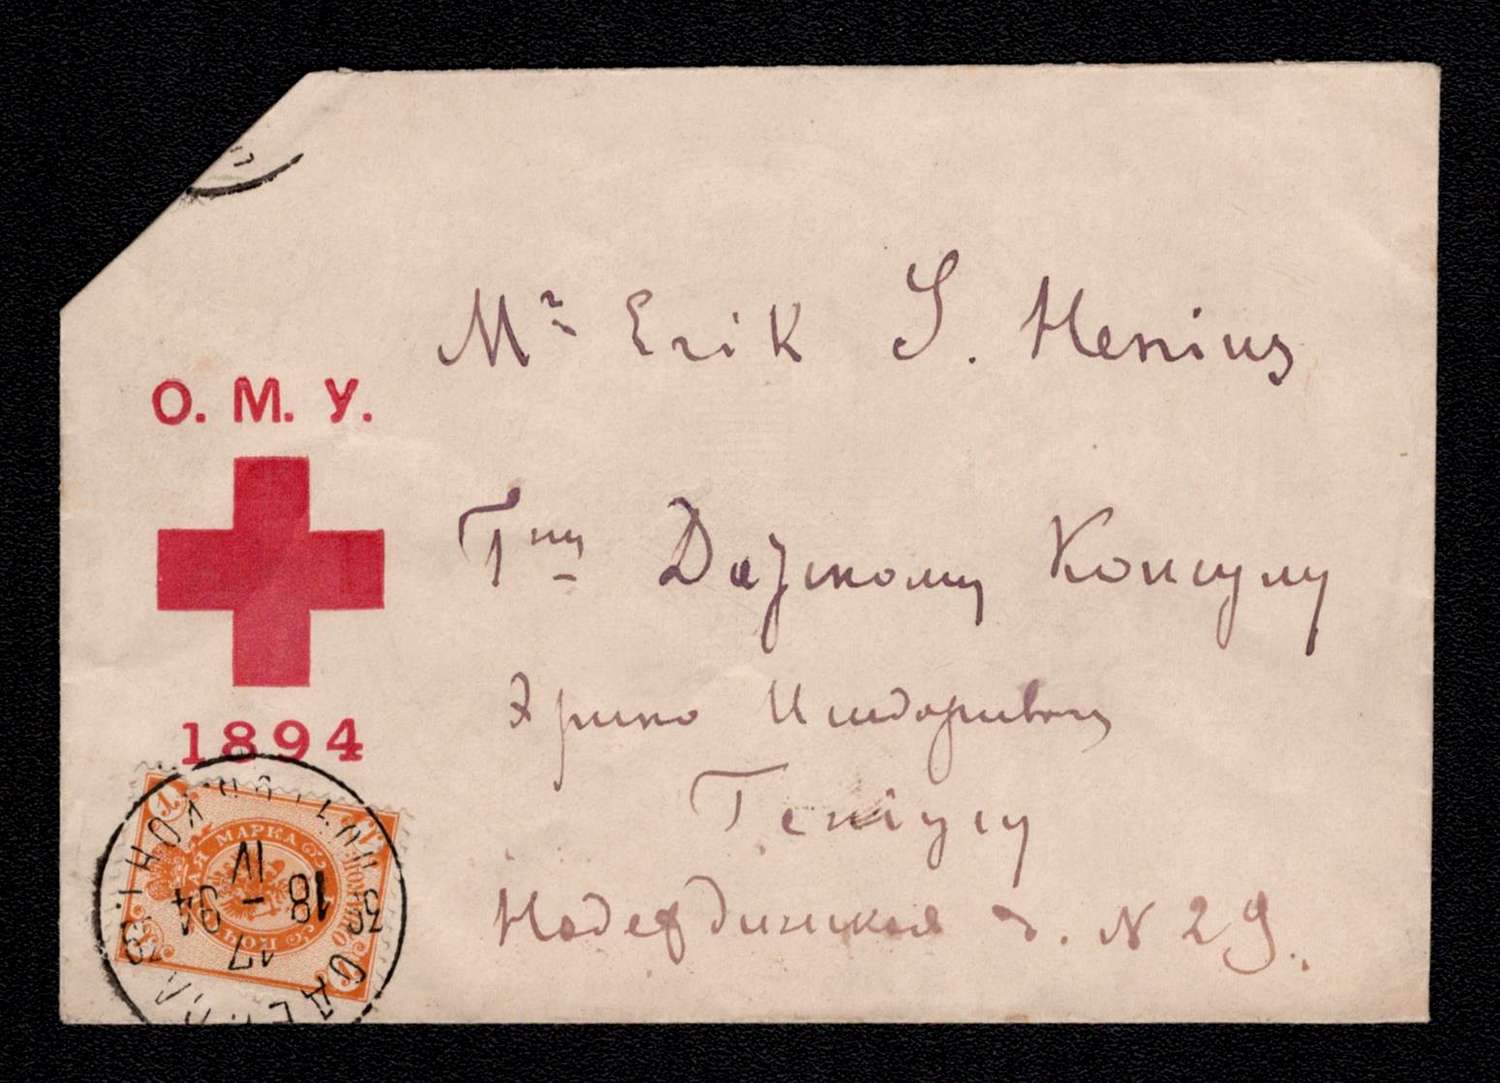 Mr Erik S. Henius
О. М. У.
Гну Датскому Консулу
Эрику Исидоровичу
1894
Геніусу
Надеждинская д. N 29.
МАРКА
18 - IV 94
17
ОДЕССА